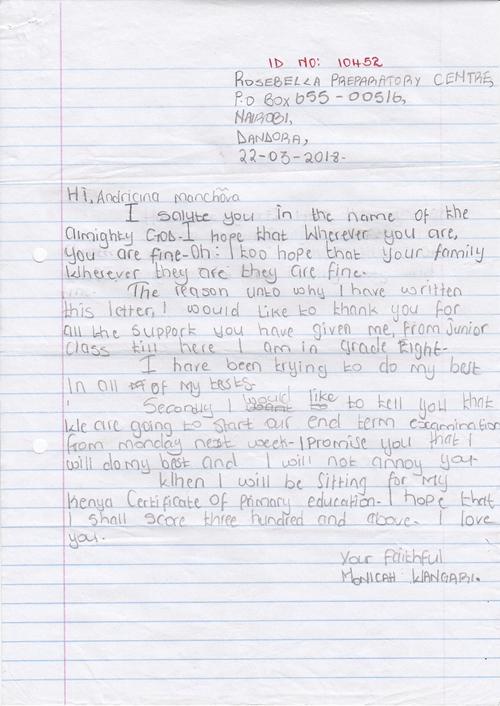 ID NO: 10452
ROSEBELLA PREPARATORY CENTRE,
P.O BOX 655-00516,
NAIROBI,
DANDORA,
22-03-2018.
Hi, Andricina manchova
I salute you in the name of the
almighty GOD. I hope that Wherever you are,
you are fine. Oh! I too hope that your family
Wherever they are they are fine.
The reason unto why I have written
this letter, I would like to thank you for
all the support you have given me, from junior
class till here I am in Grade Eight.
I have been trying to do my best
In all of my tests.
Secondly I would like to tell you that
We are going to start our end term examination
from monday next week. I promise you that I
will do my best and I will not annoy you.
When I will be sitting for my
Kenya Certificate of Primary education. I hope that
I shall score three hundred and above. I love
you.
Your faithful
MONICAH WANGARI.